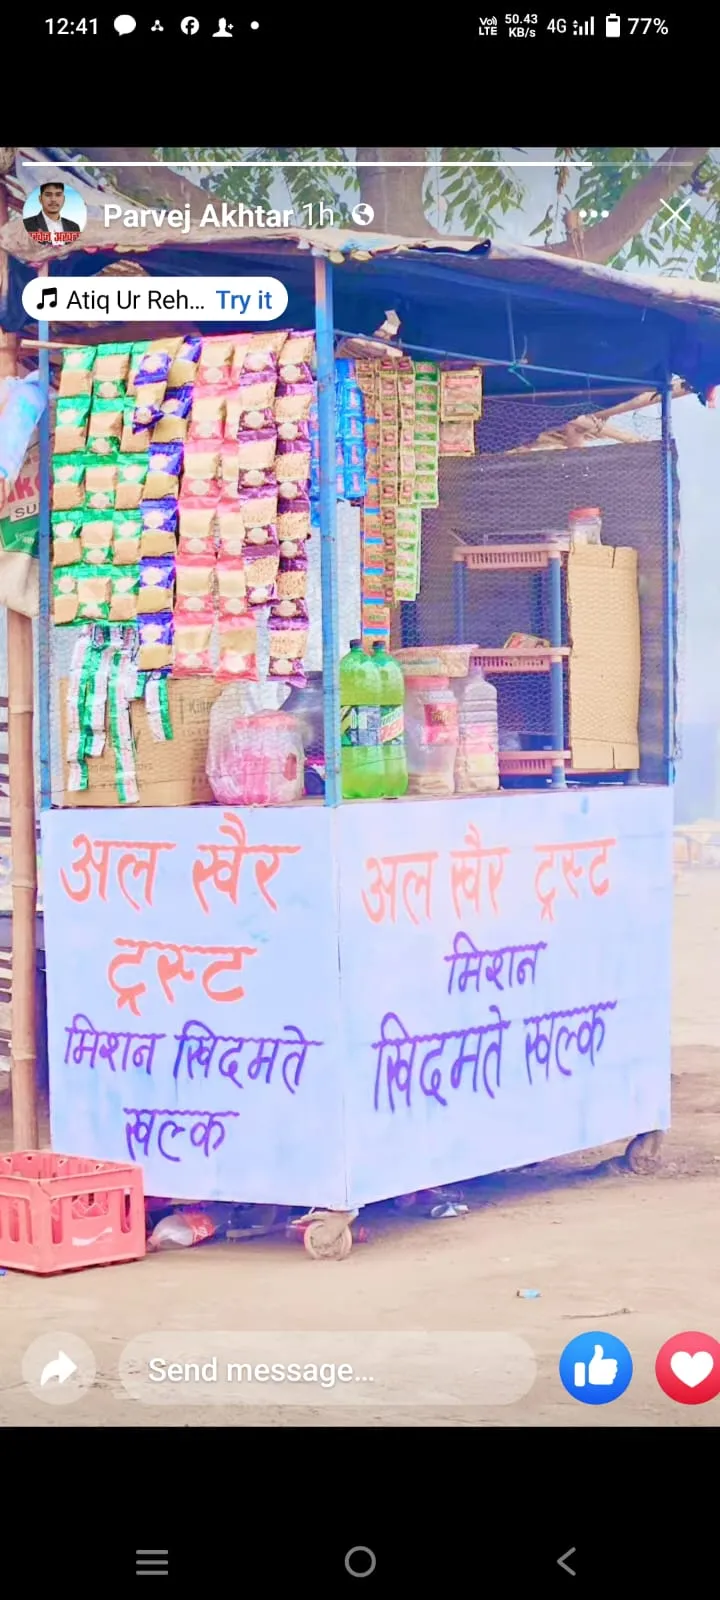 12:41
Vo)) LTE 50.43 KB/s 4G 77%
Parvej Akhtar 1h
Atiq Ur Reh... Try it
अल खैर
ट्रस्ट
मिशन खिदमते
खल्क
अल खैर ट्रस्ट
मिशन
खिदमते खल्क
Send message...